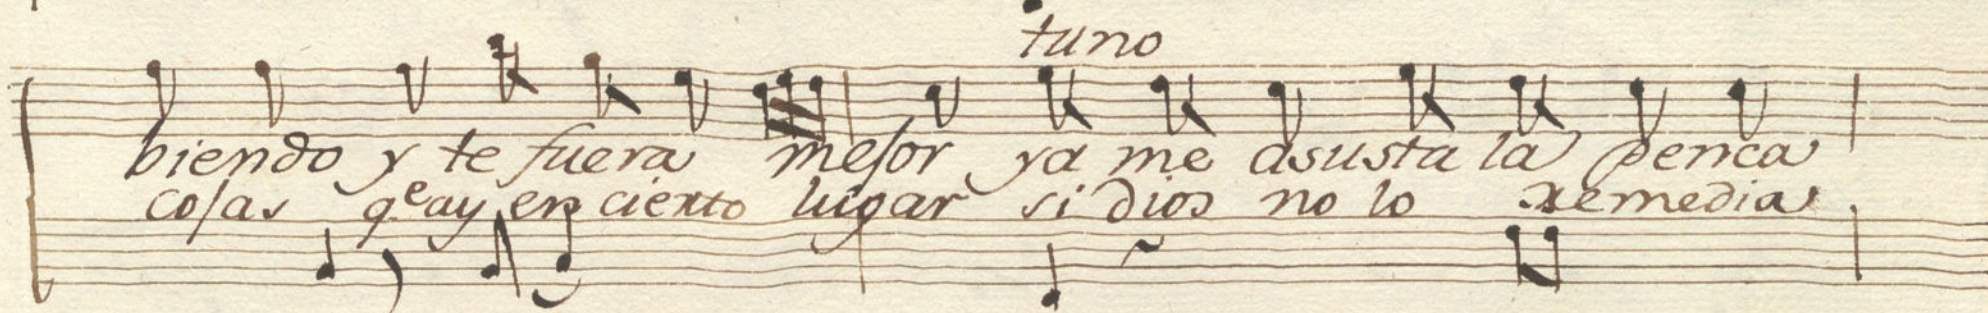 tuno
biendo y te fuera mejor ya me asusta la penca
cosas qe ay en cierto lugar si dios no lo remedia